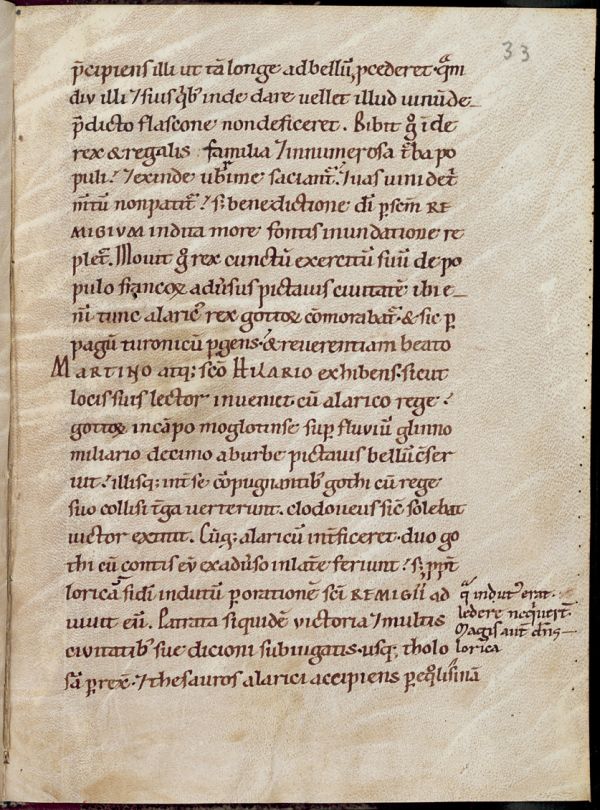 33
p̄cipiens illi ut tā longe ad bellū, p̱cederet· q̄mdiv illi ⁊ suis q̱b; inde dare vellet illud uinū de
p̄dicto flascone non deficeret. Bibit g̊ īde
rex & regalis familia ⁊ innumerosa t̄ba po
puli· ⁊ exinde ub̄ime saciant̄· ⁊ uas uini det̄
m̄tū non patit̄· s; benedictione dī p̱ scm̄ RE
MIGIVM indita more fontis inundatione re
plet̄. Movit g̊ rex cunctū exercitū suū de po
pulo francoꝝ adūsus pictauis ciuitatē ibi e
ni tunc alaric᷒ rex gottoꝝ cōmorabat̄· & sic p̱
pagū turonicū p̱gens· & reuerentiam beato
MARTINO atq; scō HILARIO exhibens· sicut
locis suis lector inueniet cū alarico rege
gottoꝝ in cāpo moglotinse sup̱ fluviū glinno
miliario decimo ab urbe pictauis bellū c̄ser
uit· illisq; int̄ se cōpugnantib; gothi cū rege
suo collisi t̄ga verterunt. clodoveus sic̄ solebat
uictor extitit. Cūq; alaricū int̄ficeret· duo go
thi eū contis ex adūso in lat̄e feriunt· s; pp̄t
loricā sidī indutū p̱ orationē sc̄i REMIGII ad
q̄ indut᷒ erat·
ledere neq̇uert̄
Magis aut̄ dn̄s
lorica
iuuit eū. Patrata siquidē victoria ⁊ multis
civitatib; sue dicioni subiugatis· usq; tholo
sā p̱rex̄· ⁊ thesauros alarici accipiens p̱ eq̊lisinā